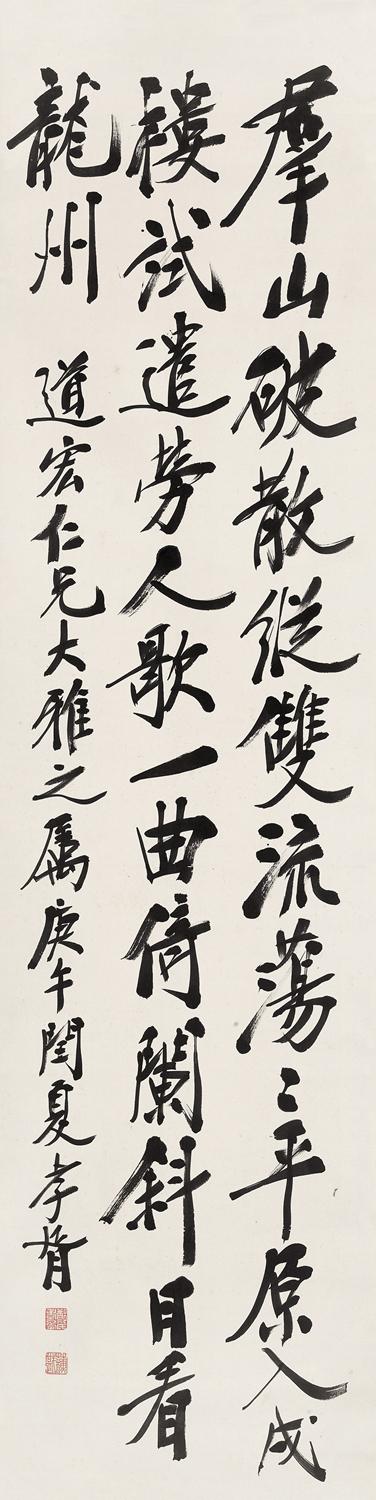 羣山破散縱雙流蕩〻平原入戍
樓試遣勞人歌一曲倚闌斜日看
龍州 道宏仁兄大雅之屬庚午閏夏孝胥